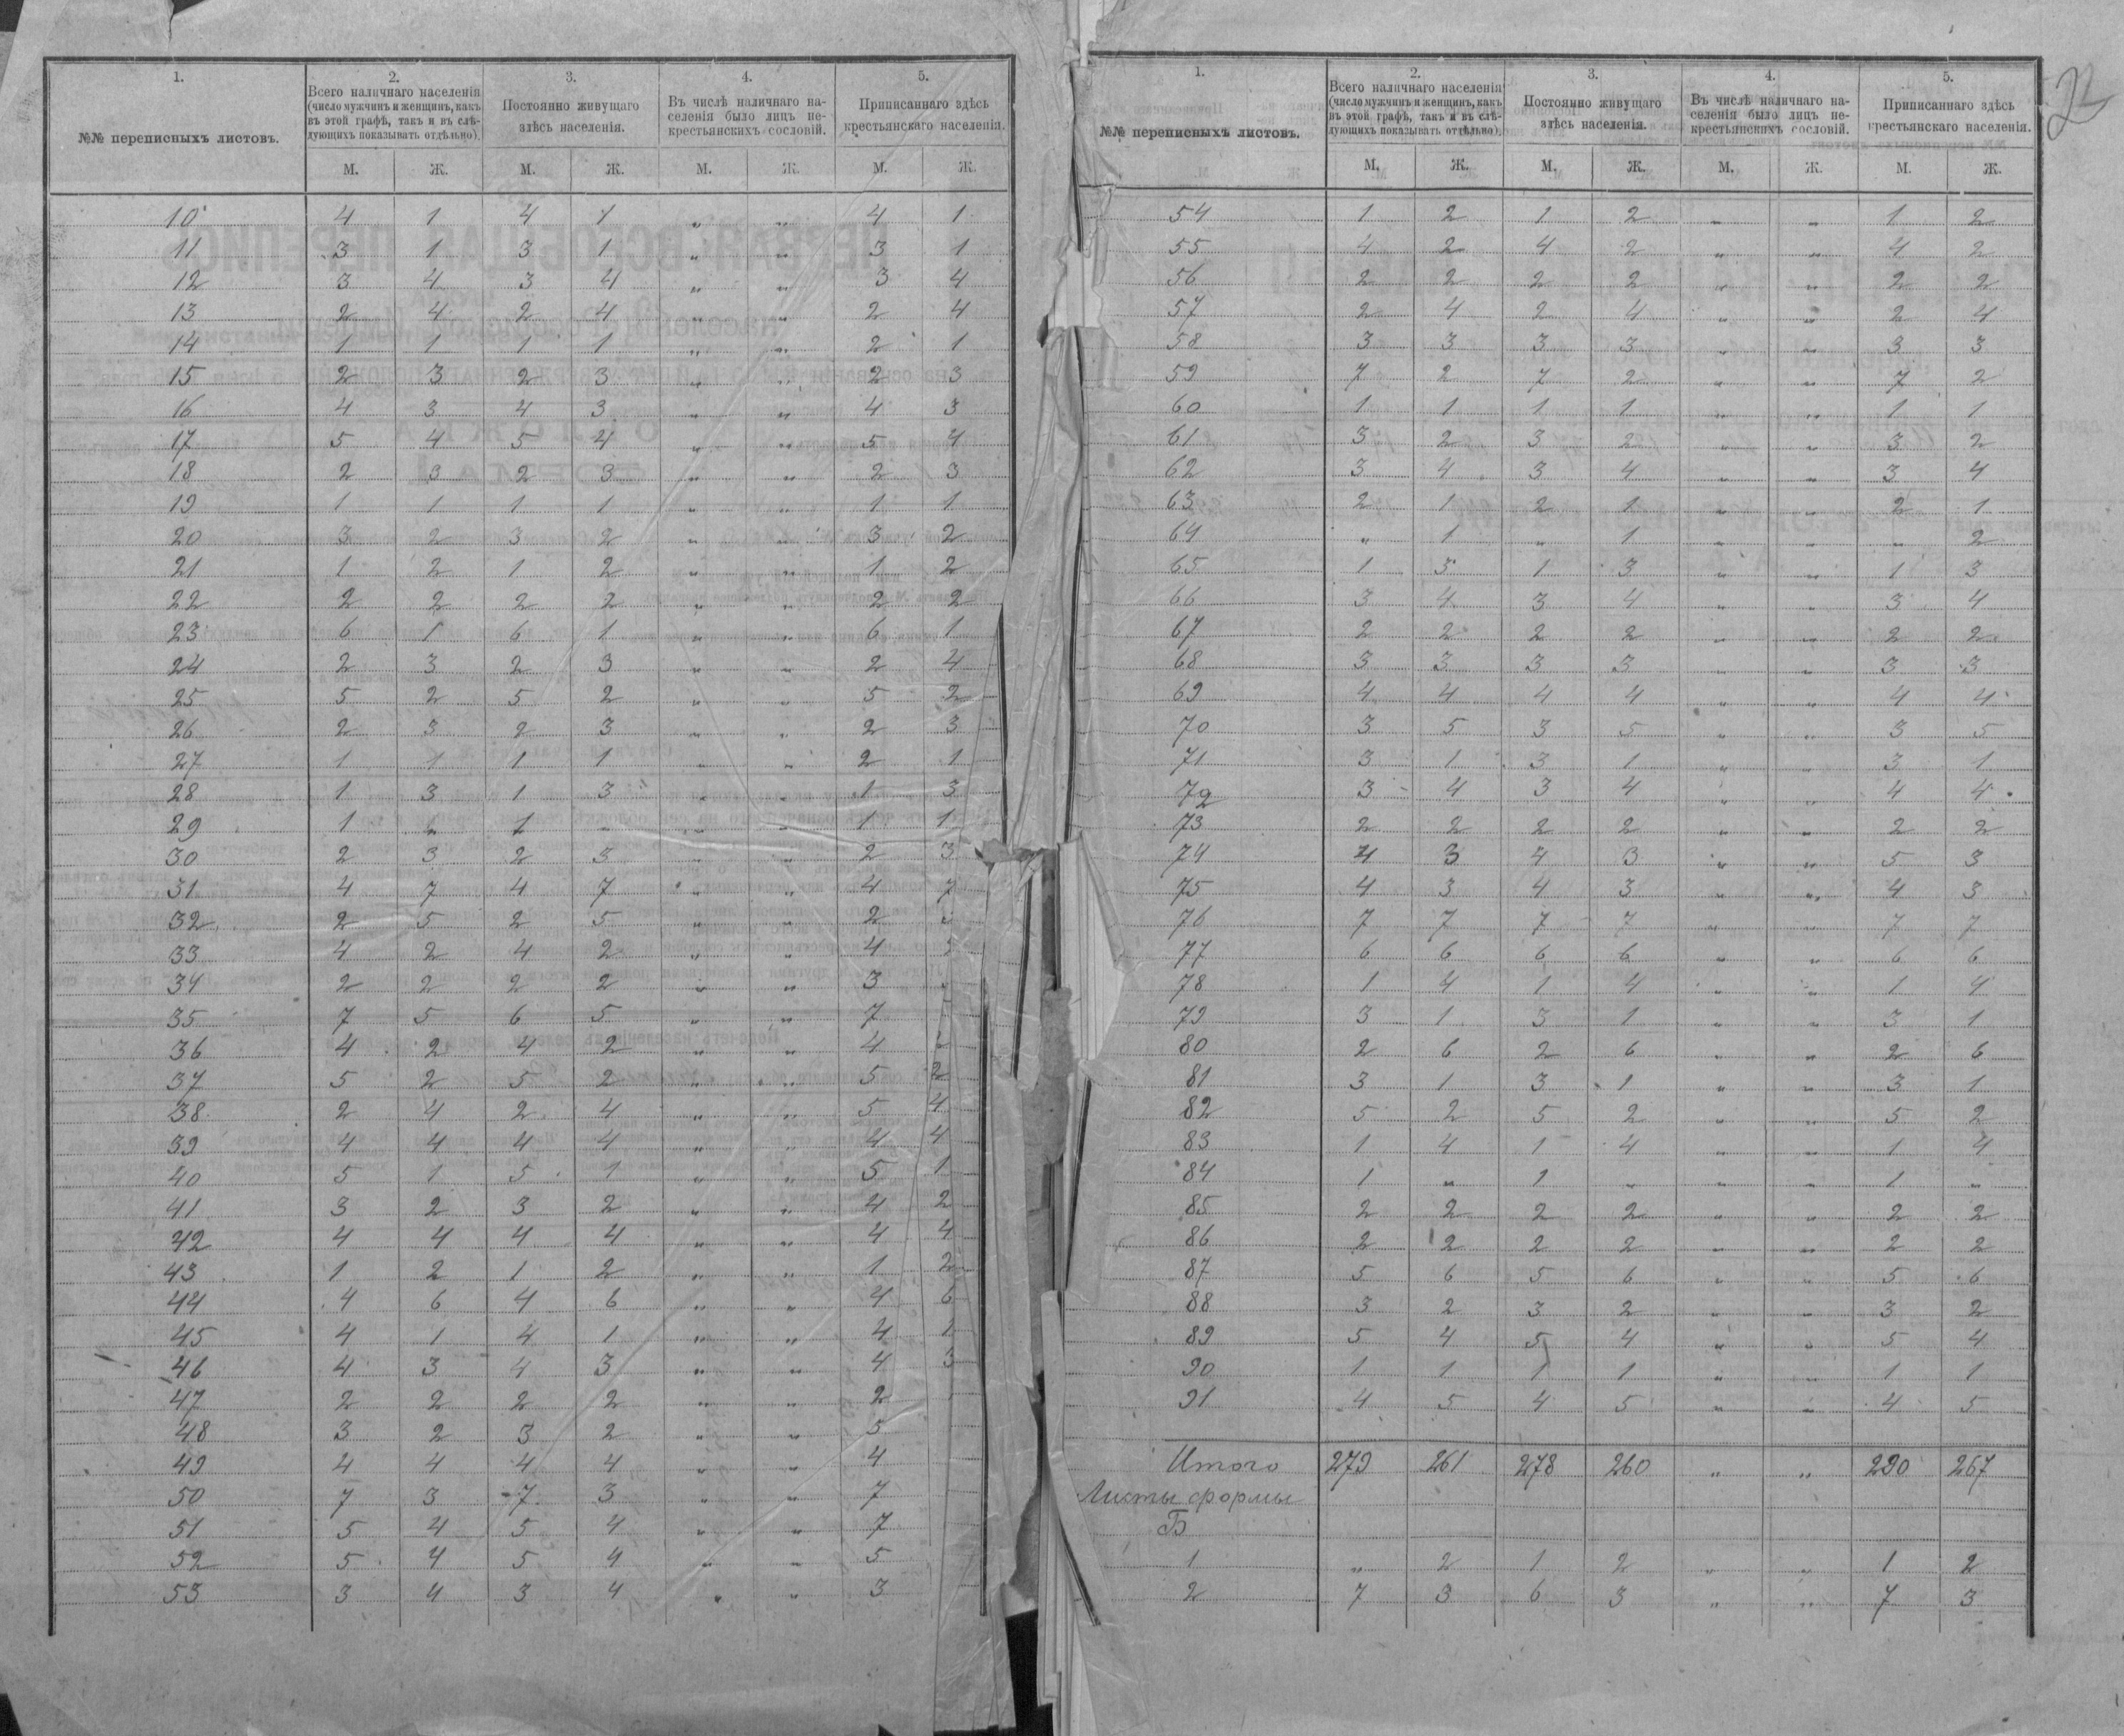 22
1. 2. 3. 4. 5.
№№ переписныхъ листовъ.
Всего наличнаго населенія
(число мужчинъ и женщинъ, какъ
въ этой графѣ, такъ и въ слѣ-
дующихъ показывать отдѣльно).
Постоянно живущаго
здѣсь населенія.
Въ числѣ наличнаго на-
селенія было лицъ не-
крестьянскихъ сословій.
Приписаннаго здѣсь
крестьянскаго населенія.
М. Ж. М. Ж. М. Ж. М. Ж.
10 4 1 4 1 „ „ 4 1
11 3 1 3 1 „ „ 3 1
12 3 4 3 4 „ „ 3 4
13 2 4 2 4 „ „ 2 4
14 1 1 1 1 „ „ 2 1
15 2 3 2 3 „ „ 2 3
16 4 3 4 3 „ „ 4 3
17 5 4 5 4 „ „ 5 4
18 2 3 2 3 „ „ 2 3
19 1 1 1 1 „ „ 1 1
20 3 2 3 2 „ „ 3 2
21 1 2 1 2 „ „ 1 2
22 2 2 2 2 „ „ 2 2
23 6 1 6 1 „ „ 6 1
24 2 3 2 3 „ „ 2 4
25 5 2 5 2 „ „ 5 2
26 2 3 2 3 „ „ 2 3
27 1 1 1 1 „ „ 2 1
28 1 3 1 3 „ „ 1 3
29 1 „ 1 „ „ „ 1 1
30 2 3 2 3 „ „ 2 3
31 4 7 4 7 „ „ 4 7
32 2 5 2 5 „ „ 2
33 4 2 4 2 „ „ 4
34 2 2 2 2 „ „ 3
35 7 5 6 5 „ „ 7
36 4 2 4 2 „ „ 4
37 5 2 5 2 „ „ 5 2
38 2 4 2 4 „ „ 5 4
39 4 4 4 4 „ „ 4 4
40 5 1 5 1 „ „ 5 1
41 3 2 3 2 „ „ 4 2
42 4 4 4 4 „ „ 4 4
43 1 2 1 2 „ „ 1 2
44 4 6 4 6 „ „ 4 6
45 4 1 4 1 „ „ 4 1
46 4 3 4 3 „ „ 4 3
47 2 2 2 2 „ „ 2
48 3 2 3 2 „ „ 5
49 4 4 4 4 „ „ 4
50 7 3 7 3 „ „ 7
51 5 4 5 4 „ „ 7
52 5 4 5 4 „ „ 5
53 3 4 3 4 „ „ 3
1. 2. 3. 4. 5.
№№ переписныхъ листовъ.
Всего наличнаго населенія
(число мужчинъ и женщинъ, какъ
въ этой графѣ, такъ и въ слѣ-
дующихъ показывать отдѣльно).
Постоянно живущаго
здѣсь населенія.
Въ числѣ наличнаго на-
селенія было лицъ не-
крестьянскихъ сословій.
Приписаннаго здѣсь
крестьянскаго населенія.
М. Ж. М. Ж. М. Ж. М. Ж.
54 1 2 1 2 „ „ 1 2
55 4 2 4 2 „ „ 4 2
56 2 2 2 2 „ „ 2 2
57 2 4 2 4 „ „ 2 4
58 3 3 3 3 „ „ 3 3
59 7 2 7 2 „ „ 7 2
60 1 1 1 1 „ „ 1 1
61 3 2 3 2 „ „ 3 2
62 3 4 3 4 „ „ 3 4
63 2 1 2 1 „ „ 2 1
64 „ 1 „ 1 „ „ „ 2
65 1 3 1 3 „ „ 1 3
66 3 4 3 4 „ „ 3 4
67 2 2 2 2 „ „ 2 2
68 3 3 3 3 „ „ 3 3
69 4 4 4 4 „ „ 4 4
70 3 5 3 5 „ „ 3 5
71 3 1 3 1 „ „ 3 1
72 3 4 3 4 „ „ 4 4
73 2 2 2 2 „ „ 2 2
74 4 3 4 3 „ „ 5 3
75 4 3 4 3 „ „ 4 3
76 7 7 7 7 „ „ 7 7
77 6 6 6 6 „ „ 6 6
78 1 4 1 4 „ „ 1 4
79 3 1 3 1 „ „ 3 1
80 2 6 2 6 „ „ 2 6
81 3 1 3 1 „ „ 3 1
82 5 2 5 2 „ „ 5 2
83 1 4 1 4 „ „ 1 4
84 1 „ 1 „ „ „ 1 „
85 2 2 2 2 „ „ 2 2
86 2 2 2 2 „ „ 2 2
87 5 6 5 6 „ „ 5 6
88 3 2 3 2 „ „ 3 2
89 5 4 5 4 „ „ 5 4
90 1 1 1 1 „ „ 1 1
91 4 5 4 5 „ „ 4 5
Итого 279 261 278 260 „ „ 290 267
Листы формы
Б
1 „ 2 1 2 „ „ 1 2
2 7 3 6 3 „ „ 7 3